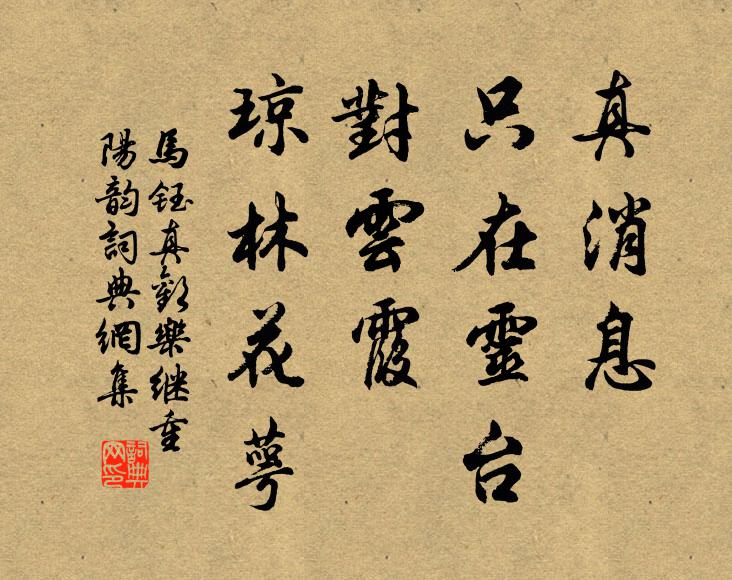 真消息
只在靈台
對雲霞
琼林花萼
馬鈺真歡樂继重
陽韵詞典網集
詞典网印